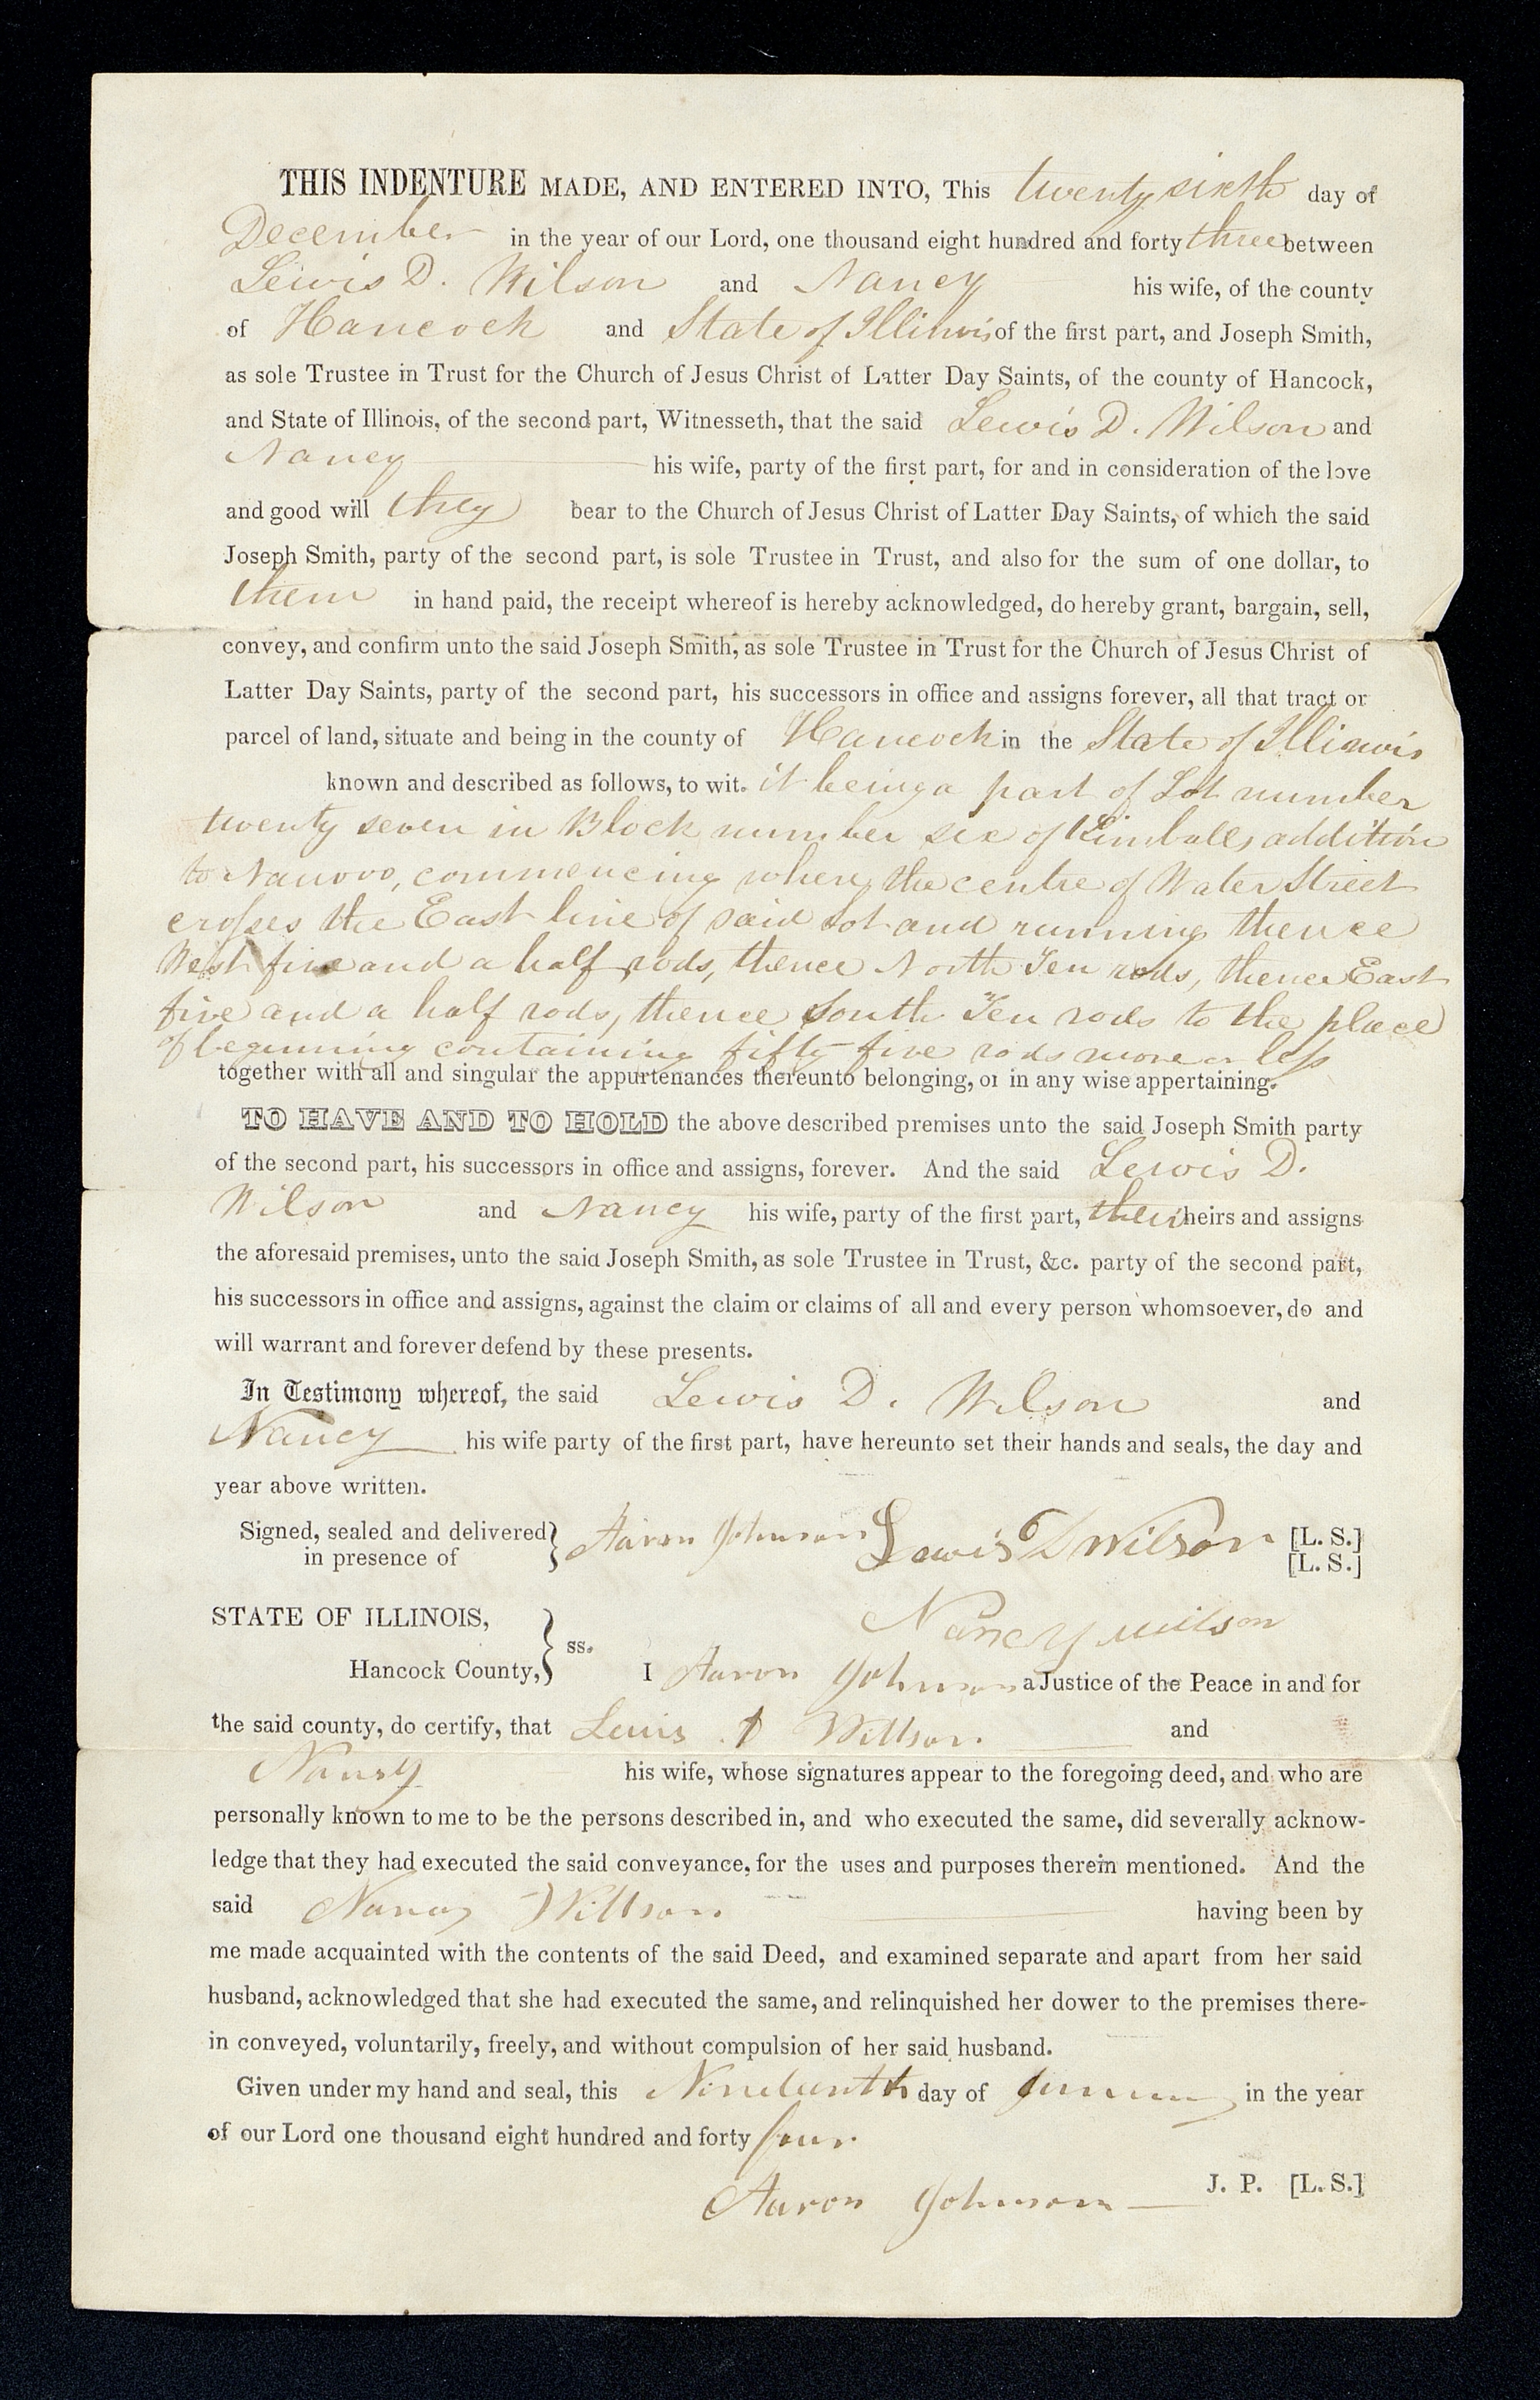 THIS INDENTURE MADE, AND ENTERED INTO, This twenty sixth day of
December in the year of our Lord, one thousand eight hundred and forty three between
Lewis D. Wilson and Nancy his wife, of the county
of Hancock and State of Illinois of the first part, and Joseph Smith,
as sole Trustee in Trust for the Church of Jesus Christ of Latter Day Saints, of the county of Hancock,
and State of Illinois, of the second part, Witnesseth, that the said Lewis D. Wilson and
Nancy his wife, party of the first part, for and in consideration of the love
and good will they bear to the Church of Jesus Christ of Latter Day Saints, of which the said
Joseph Smith, party of the second part, is sole Trustee in Trust, and also for the sum of one dollar, to
them in hand paid, the receipt whereof is hereby acknowledged, do hereby grant, bargain, sell,
convey, and confirm unto the said Joseph Smith, as sole Trustee in Trust for the Church of Jesus Christ of
Latter Day Saints, party of the second part, his successors in office and assigns forever, all that tract or
parcel of land, situate and being in the county of Hancock in the State of Illinois
known and described as follows, to wit. it being a part of Lot number
twenty seven in Block number six of Kimballs addition
to Nauvoo, commencing where the centre of Water Street
crosses the East line of said Lot and running thence
West five and a half rods, thence North Ten rods, thence East
five and a half rods, thence South Ten rods to the place
of beginning containing fifty-five rods more or less
together with all and singular the appurtenances thereunto belonging, or in any wise appertaining.
TO HAVE AND TO HOLD the above described premises unto the said Joseph Smith party
of the second part, his successors in office and assigns, forever. And the said Lewis D.
Wilson and Nancy his wife, party of the first part, their heirs and assigns
the aforesaid premises, unto the said Joseph Smith, as sole Trustee in Trust, &c. party of the second part,
his successors in office and assigns, against the claim or claims of all and every person whomsoever, do and
will warrant and forever defend by these presents.
In Testimony whereof, the said Lewis D. Wilson and
Nancy his wife party of the first part, have hereunto set their hands and seals, the day and
year above written.
Signed, sealed and delivered } Aaron Johnson Lewis D Wilson [L. S.]
in presence of [L. S.]
STATE OF ILLINOIS, } ss. Nancy Wilson
Hancock County, I Aaron Johnson a Justice of the Peace in and for
the said county, do certify, that Lewis D Willson and
Nancy his wife, whose signatures appear to the foregoing deed, and who are
personally known to me to be the persons described in, and who executed the same, did severally acknow-
ledge that they had executed the said conveyance, for the uses and purposes therein mentioned. And the
said Nancy Willson having been by
me made acquainted with the contents of the said Deed, and examined separate and apart from her said
husband, acknowledged that she had executed the same, and relinquished her dower to the premises there-
in conveyed, voluntarily, freely, and without compulsion of her said husband.
Given under my hand and seal, this day of in the year
of our Lord one thousand eight hundred and forty four
Aaron Johnson J. P. [L. S.]